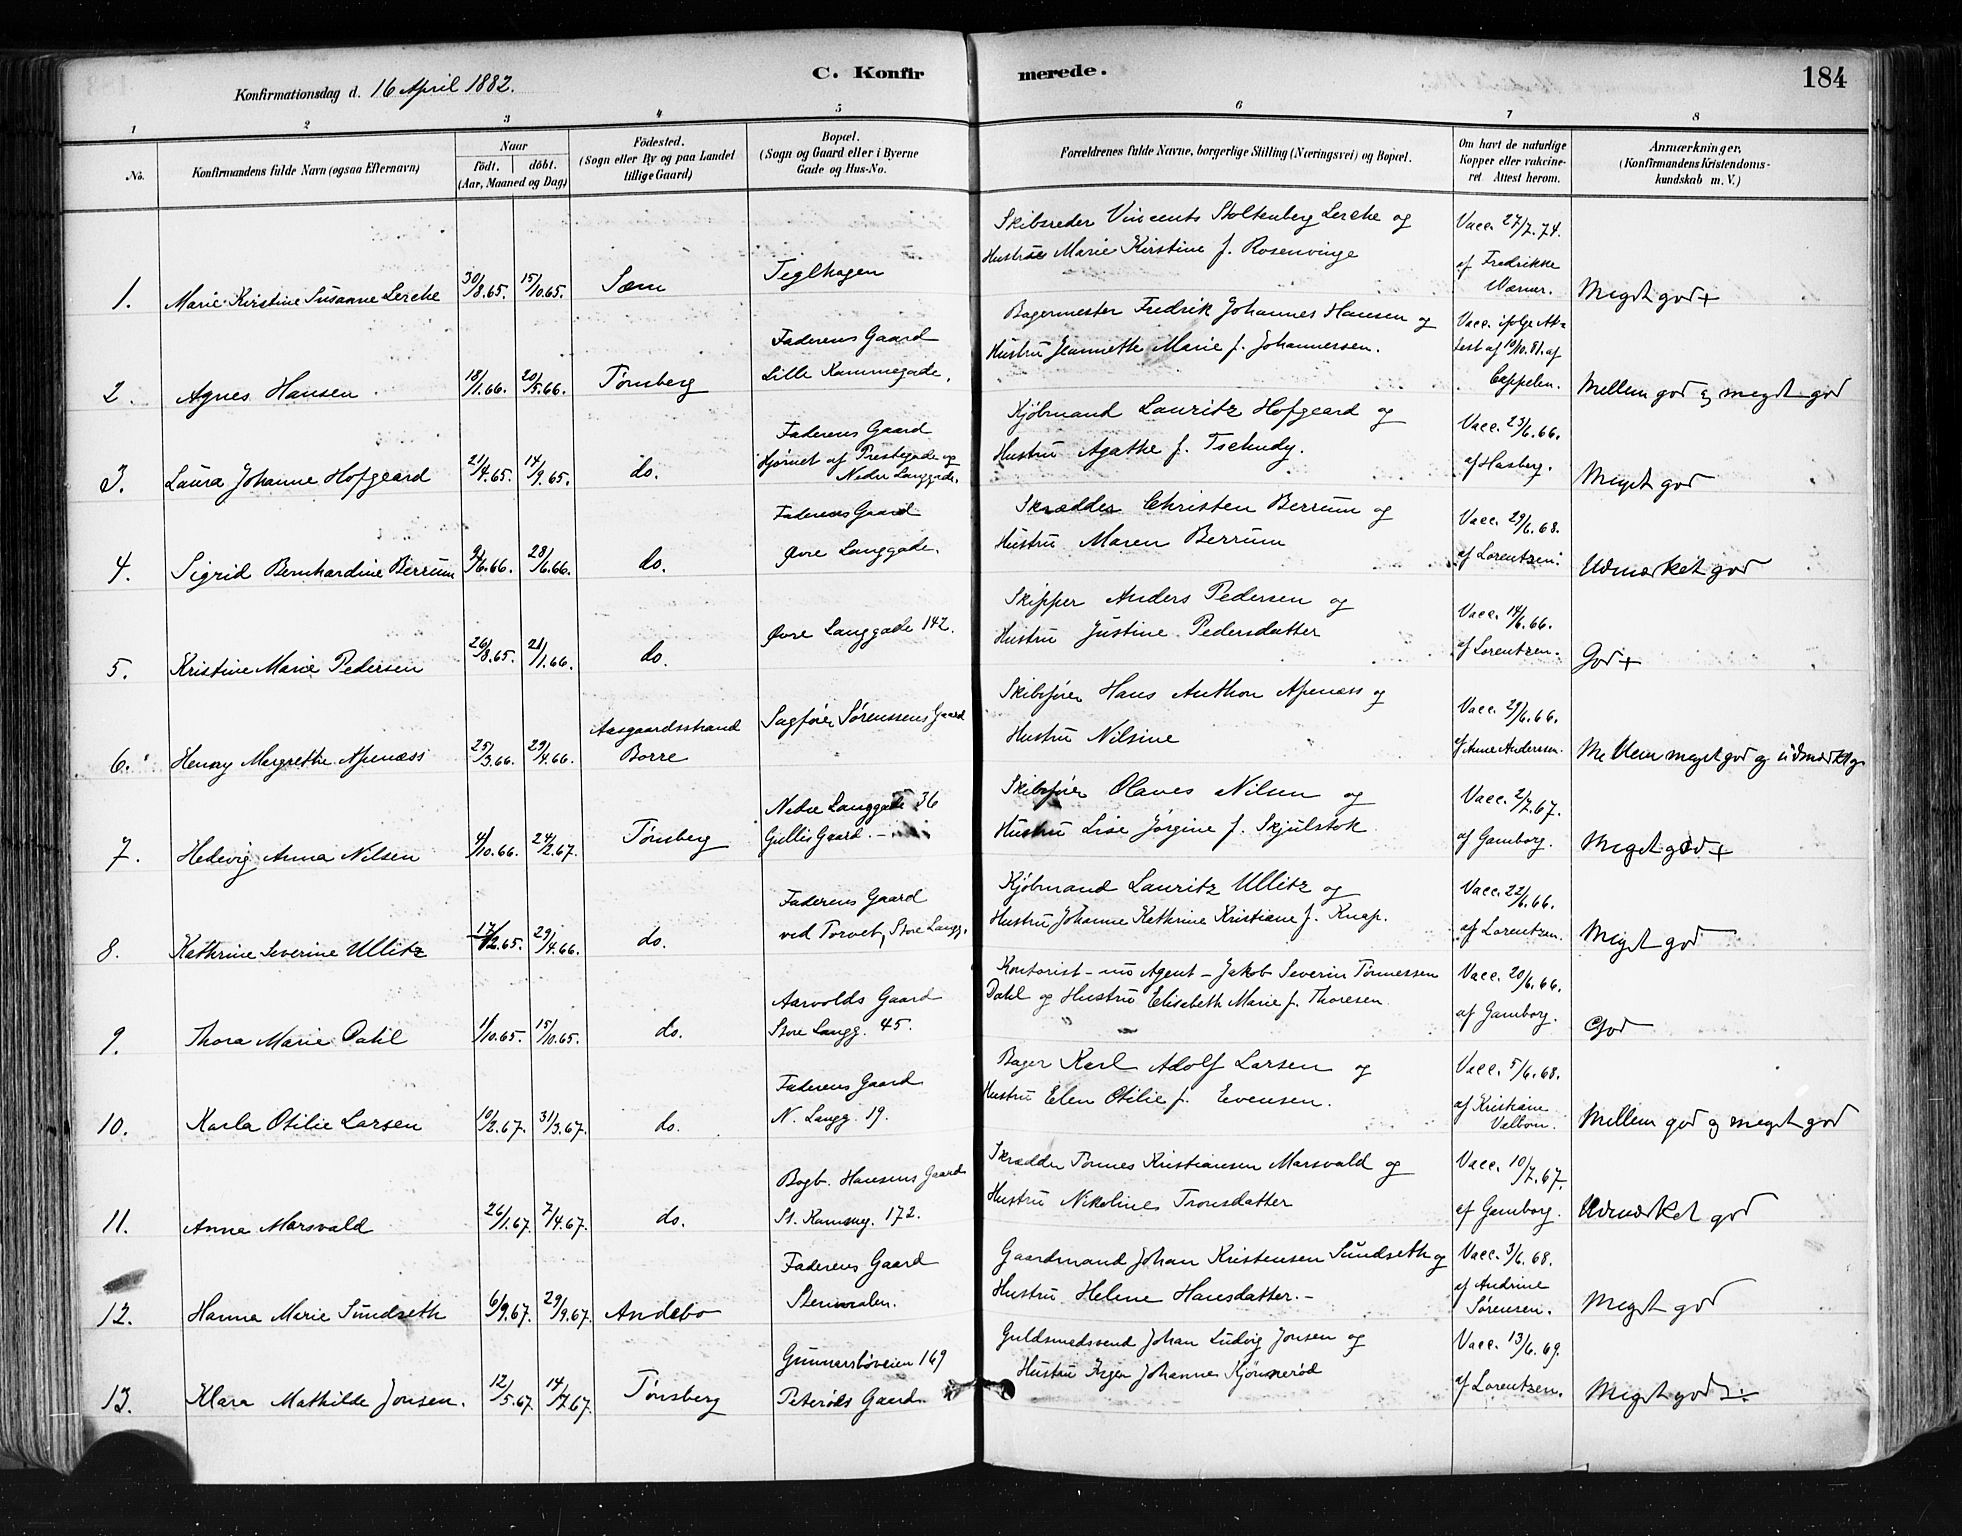 C. Konfirmerede.
184
Konfirmationsdag d. 16 April 1882.
1 2 3 4 5 6 7 8
No.
Konfirmandens fulde Navn (ogsaa Efternavn)
Naar
født. døbt.
(Aar, Maaned og Dag)
Fødested.
(Sogn eller By og paa Landet
tillige Gaard)
Bopæl.
(Sogn og Gaard eller i Byerne
Gade og Hus-No.
Forældrenes fulde Navne, borgerlige Stilling (Næringsvei) og Bopæl.
Om havt de naturlige
Kopper eller vakcine-
ret Attest herom.
Anmærkninger,
(Konfirmandens Kristendoms-
kundskab m. V.)
1. Marie Kirstine Susanne Lerche 30/8.65. 15/10.65. Sæm Teglhagen
Skibsreder Vincents Stoltenberg Lerche og
Hustru Marie Kirstine f. Rosenvinge
Vacc. 27/7.74.
af Fredrikke
Værner.
Meget god +
2. Agnes Hansen 18/1.66. 20/5.66. Tønsberg
Faderens Gaard
Lille Kammegade.
Bagermester Fredrik Johannes Hansen og
Hustru Jeannette Marie f. Johannessen.
Vacc. ifølge At-
test af 19/10.81. af
Cappelen.
Mellem god og meget god
3. Laura Johanne Hofgaard 21/4.65. 14/9.65. do.
Faderens Gaard
Hjørnet af Prestegade og
Nedre Langgade.
Kjøbmand Lauritz Hofgaard og
Hustru Agathe f. Tschudy.
Vacc. 23/6.66.
af Hasberg.
Meget god
4. Sigrid Bernhardine Berrum 9/6.66. 28/6.66. do.
Faderens Gaard
Øvre Langgade.
Skrædder Christen Berrum og
Hustru Maren Berrum
Vacc. 29/6.68.
af Lorentzen.
Udmærket god
5. Kristine Marie Pedersen 26/8.65. 21/1.66. do.
Øvre Langgade 142.
Skipper Anders Pedersen og
Hustru Justine Pedersdatter
Vacc. 14/6.66.
af Lorentzen.
God +
6. Henny Margrethe Apenæss 25/3.66. 29/4.66.
Aasgaardsstrand
Borre
Sagfører Sørenssens Gaard
Skibsfører Hans Anthon Apenæss og
Hustru Nilsine
Vacc. 29/6.66.
af Anne Andersen.
Mellem meget god og udmærket g
7. Hedevig Anna Nilsen 4/10.66. 24/2.67. Tønsberg
Nedre Langgade 36
Gullis Gaard. –
Skibsfører Olaves Nilsen og
Hustru Lise Jørgine f. Skjulstok
Vacc. 2/7.67.
af Gamborg.
Meget god +
8. Kathrine Severine Ullitz 17/12.65. 29/4.66. do.
Faderens Gaard
ved Torvet, Store Langg.
Kjøbmand Lauritz Ullitz og
Hustru Johanne Kathrine Kristiane f. Knap.
Vacc. 22/6.66.
af Lorentzen.
Meget god
9. Thora Marie Dahl 1/10.65. 15/10.65. do.
Aarvolds Gaard
Store Langg. 45.
Kontorist – nu Agent – Jakob Severin Tønnessen
Dahl og Hustru Elisabeth Marie f. Thoresen
Vacc. 20/6.66.
af Gamborg.
God
10. Karla Otilie Larsen 10/2.67. 31/3.67. do.
Faderens Gaard
N. Langg. 19.
Bager Karl Adolf Larsen og
Hustru Elen Otilie f. Evensen.
Vacc. 5/6.68.
af Kristiane
Mellem god og meget god
11. Anna Marsvald 26/1.67. 7/4.67. do.
Bogb. Hansens Gaard
St. Kammeg. 172.
Skrædder Tønnes Kristiansen Marsvald og
Hustru Nikoline Tronsdatter
Vacc. 10/7.67.
af Gamborg.
Udmærket god
12. Hanna Marie Sundseth 6/9.67. 29/9.67. Andebo
Faderens Gaard
Gaardmand Johan Kristensen Sundseth og
Hustru Helene Hansdatter. –
Vacc. 3/6.68.
af Andrine
Sørensen.
Meget god
13. Klara Mathilde Jonsen. 12/5.67. 14/7.67. Tønsberg
Gunnarsbøveien 169
Peterøds Gaard.
Guldsmedsvend Johan Ludvig Jonsen og
Hustru Inger Johanne Kjønnerød
Vacc. 13/6.69.
af Lorentzen.
Meget god